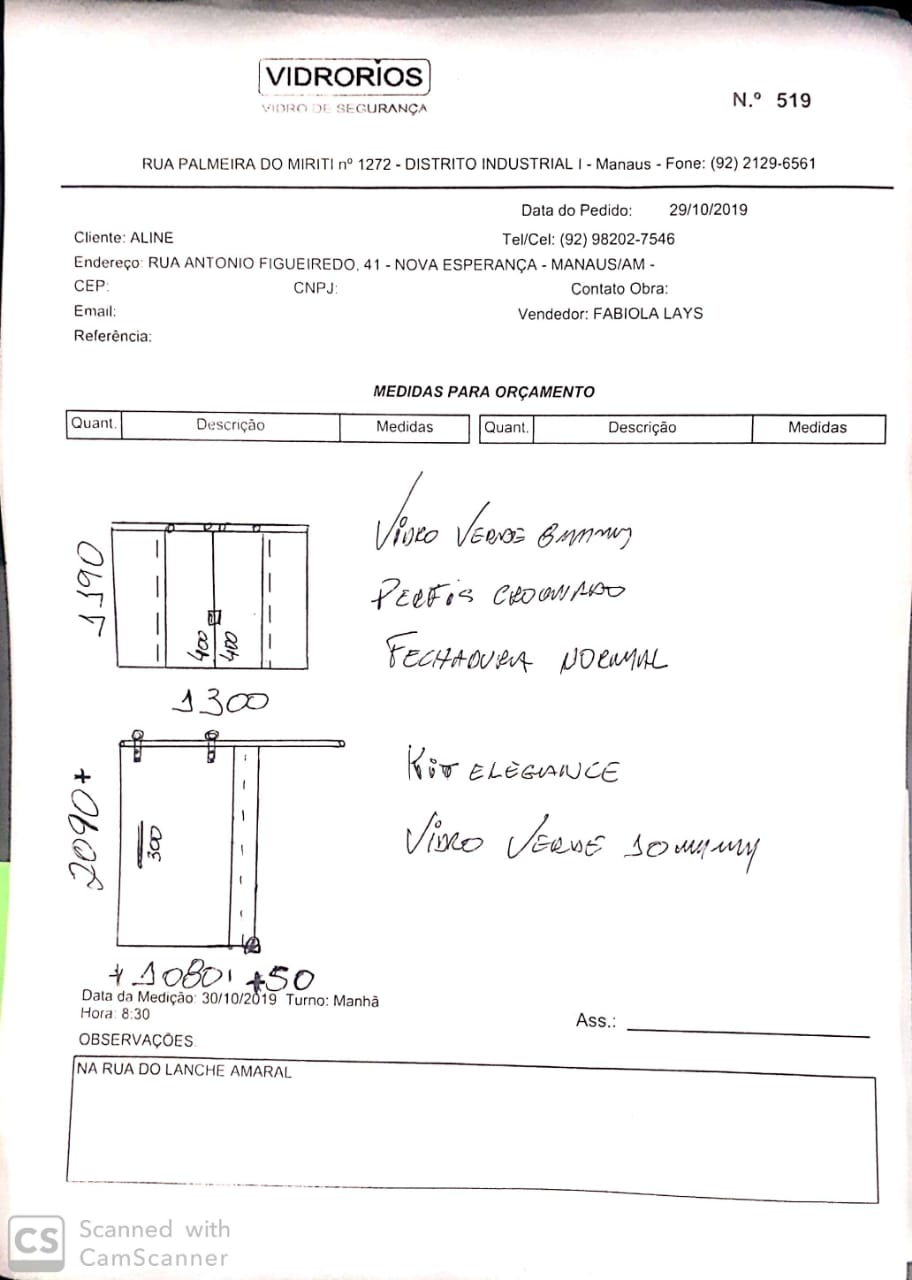 VIDRORIOS
VIDRO DE SEGURANÇA
N.º 519
RUA PALMEIRA DO MIRITI nº 1272 - DISTRITO INDUSTRIAL I - Manaus - Fone: (92) 2129-6561
Data do Pedido: 29/10/2019
Cliente: ALINE Tel/Cel: (92) 98202-7546
Endereço: RUA ANTONIO FIGUEIREDO, 41 - NOVA ESPERANÇA - MANAUS/AM -
CEP: CNPJ: Contato Obra:
Email: Vendedor: FABIOLA LAYS
Referência:
MEDIDAS PARA ORÇAMENTO
Quant. Descrição Medidas Quant. Descrição Medidas
VIDRO VERDE 8MM
1390
PERFIS
400 400
FECHADURA NORMAL
1300
KIT ELEGANCE
2090+
300
VIDRO VERDE 10MM
+1080 +50
Data da Medição: 30/10/2019 Turno: Manhã
Hora: 8:30
Ass.:
OBSERVAÇÕES
NA RUA DO LANCHE AMARAL
CS Scanned with
CamScanner